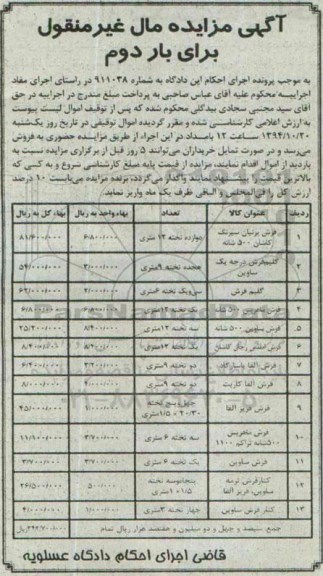 آگهی مزایده مال غیرمنقول
برای بار دوم
به موجب پرونده اجرای احکام این دادگاه به شماره ۹۱۱۰۳۸ در راستای اجرای مفاد
اجراییه محکوم علیه آقای عباس صاحبی به پرداخت مبلغ مندرج در اجراییه در حق
آقای سید مجتبی سجادی بیدگلی محکوم شده که پس از توقیف اموال لیست پیوست
به ارزش اعلامی کارشناسی شده و مقرر گردیده اموال توقیفی در تاریخ روز یکشنبه
۱۳۹۴/۱۰/۲۰ ساعت ۱۲ بامداد در این اجرا، از طریق مزایده حضوری به فروش
می‌رسد و در صورت تمایل خریداران می‌توانند ۵ روز قبل از برگزاری مزایده نسبت به
بازدید از اموال اقدام نمایند، مزایده از قیمت پایه مبلغ کارشناسی شروع و به کسی که
بالاترین قیمت را پیشنهاد نمایند واگذار می‌گردد، برنده مزایده می‌بایست ۱۰ درصد
ارزش کل را فی‌المجلس و الباقی ظرف یک ماه واریز نماید.
ردیف عنوان کالا تعداد بهاء واحد به ریال بهاء کل به ریال
۱ فرش پرنیان سبرنگ کاشان ۵۰۰ شانه دوازده تخته ۱۲ متری ۶/۸۰۰/۰۰۰ ۸۱/۶۰۰/۰۰۰
۲ گلیم‌فرش درجه یک ساوین هجده تخته ۹متری ۳/۰۰۰/۰۰۰ ۵۴/۰۰۰/۰۰۰
۳ گلیم فرش سی‌ویک تخته ۶متری ۲/۰۰۰/۰۰۰ ۶۲/۰۰۰/۰۰۰
۴ فرش ۵۰۰ شانه یک تخته ۱۲متری ۶/۸۰۰/۰۰۰ ۶/۸۰۰/۰۰۰
۵ فرش ساوین ۵۰۰ شانه سه تخته ۱۲متری ۸/۴۰۰/۰۰۰ ۲۵/۲۰۰/۰۰۰
۶ فرش کاشان یک تخته ۱۲متری
۷ فرش الفا دو تخته ۹متری
۸ فرش الفا کاریت دو تخته ۹متری ۸/۰۰۰/۰۰۰
۹ فرش فریز الفا چهل‌وپنج تخته ۱/۵متری ۱/۰۰۰/۰۰۰ ۴۵/۰۰۰/۰۰۰
۱۰ فرش ۵۰۰شانه تراکم ۱۱۰۰ سه تخته ۶ متری ۳/۷۰۰/۰۰۰ ۱۱/۱۰۰/۰۰۰
۱۱ فرش ساوین یک تخته ۶ متری ۳/۷۰۰/۰۰۰ ۳/۷۰۰/۰۰۰
۱۲ کنارفرش ساوین، فریز الفا پنجاه‌وسه تخته ۱/۵×۱متری ۵۰۰/۰۰۰ ۲۶/۵۰۰/۰۰۰
۱۳ کنار فرش ساوین چهار تخته ۳متری ۱/۰۰۰/۰۰۰ ۴/۰۰۰/۰۰۰
جمع: سیصد و چهل و دو میلیون و هفتصد هزار ریال تمام ۳۴۲/۷۰۰/۰۰۰ریال
قاضی اجرای احکام دادگاه عسلویه